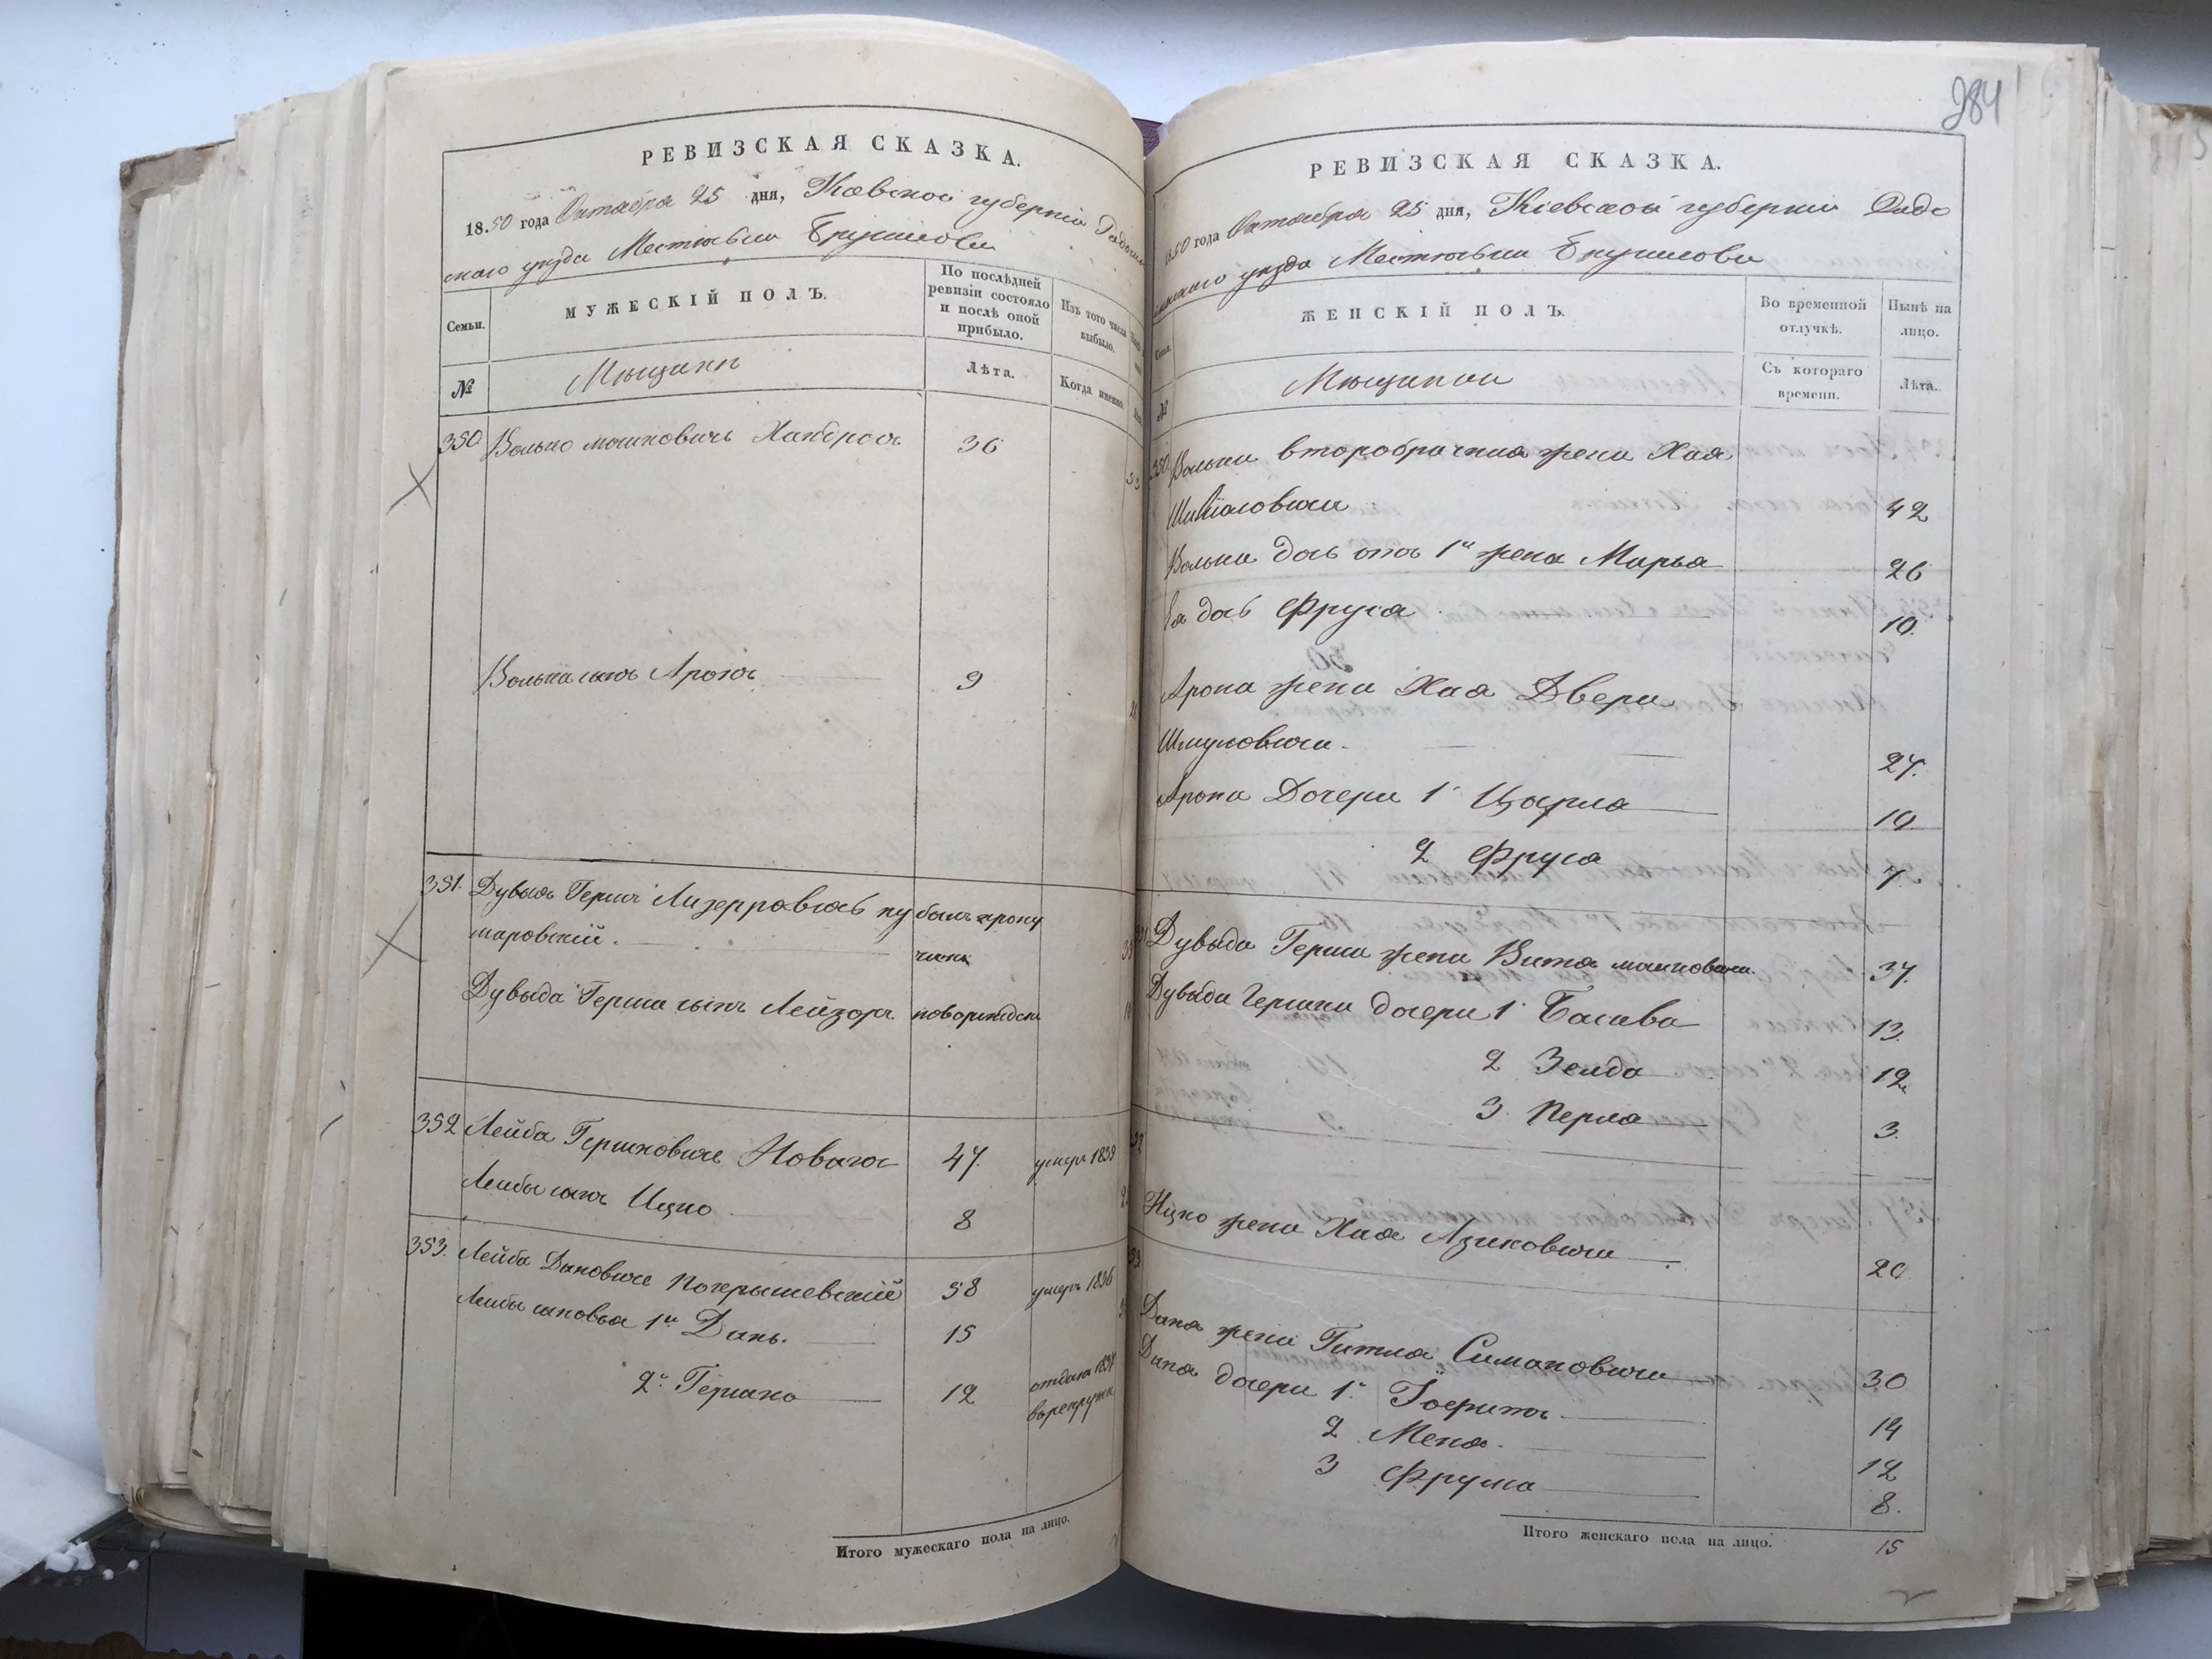 РЕВИЗСКАЯ СКАЗКА.
1850 года Октября 25 дня, Кіевской губерніи Радомысль
скаго уезда Местечька Брусилова
Семьи.
МУЖЕСКІЙ ПОЛЪ.
По послѣдней ревизіи состояло и послѣ оной прибыло.
Изъ того числа выбыло.
№
Мѣщани
Лѣта.
Когда именно.
350 Волько мошковичь 36
Волька сынъ Аронъ 9
351. Дувыдъ Гершъ
шаровскій.
Дувыда Герша сынъ Лейзоръ новорожденъ
352 Лейба Гершковичь Новакъ 47. умеръ 1839
Лейбы сынъ Ицко 8
353. Лейба Дановичь Погерышевскій 58 умеръ 1836
Лейбы сыновья 1й Данъ. 15
2й Гершко 12 отданъ
врекруты
Итого мужескаго пола на лицо.
284
РЕВИЗСКАЯ СКАЗКА.
1850 года Октября 25 дня, Кіевской губерніи Радо
мысльскаго уезда Местечька Брусилова
Семьи.
ЖЕНСКІЙ ПОЛЪ.
Во временной отлучкѣ.
Нынѣ на лицо.
№
Мѣщанки
Съ котораго времени.
Лѣта.
350 Волька второбрачная жена Хая
42
Волька дочь отъ 1й жена Марья 26
Ея дочь Фруга 10.
Арона жена Хая Двера
Шмуловича. 27.
Арона Дочери 1 Цырла 10
2 Фруга 7.
351 Дувыда Герша жена Вита мошковича. 37.
Дувыда Гершка дочери 1 Басива 13.
2 Зелда 12
3 Перла 3.
352
Ицко жена Хая Азиковича 20
353
Дана жена Гитла Симановича 30
Дана дочери 1. 14
2 Мена. 12
3 Фрума 8.
Итого женскаго пола на лицо. 15